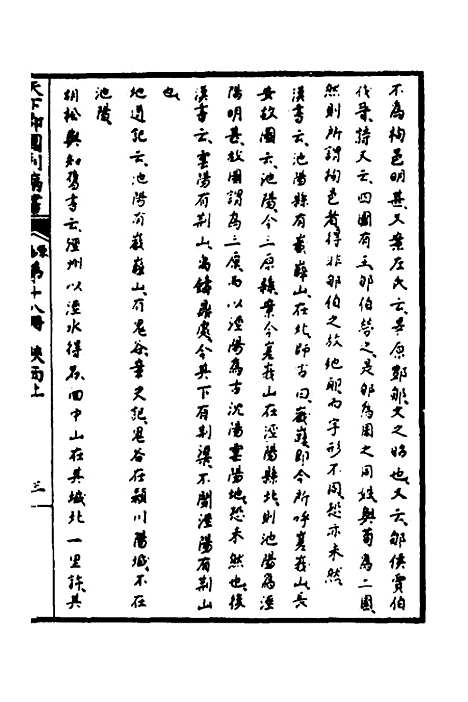 不爲栒邑明甚又案左氏云畢原酆郇文之昭也又云郇侯賈伯
伐晉詩又云四國有王郇伯勞之是郇爲周之同姓與荀爲二國
然則所謂栒邑者得非郇伯之故地耶而字形不同疑亦未然
漢書云池陽縣有嶻嶭山在北師古曰嶻嶭即今所呼嵳峩山長
安故圖云池陽今三原縣案今嵳峩山在涇陽縣北則池陽爲涇
陽明甚故圖謂爲三原焉以涇陽爲古沈陽雲陽地恐未然也後
漢書云雲陽有荆山禹鑄鼎處今其下有荆渠不聞涇陽有荆山
也
地道記云池陽有嶻嶭山有鬼谷案史記鬼谷在潁川陽城不在
池陽
胡松與知舊書云涇州以涇水得名回中山在其城北一里許其
天下郡國利病書
原第十八冊 陜西上
三